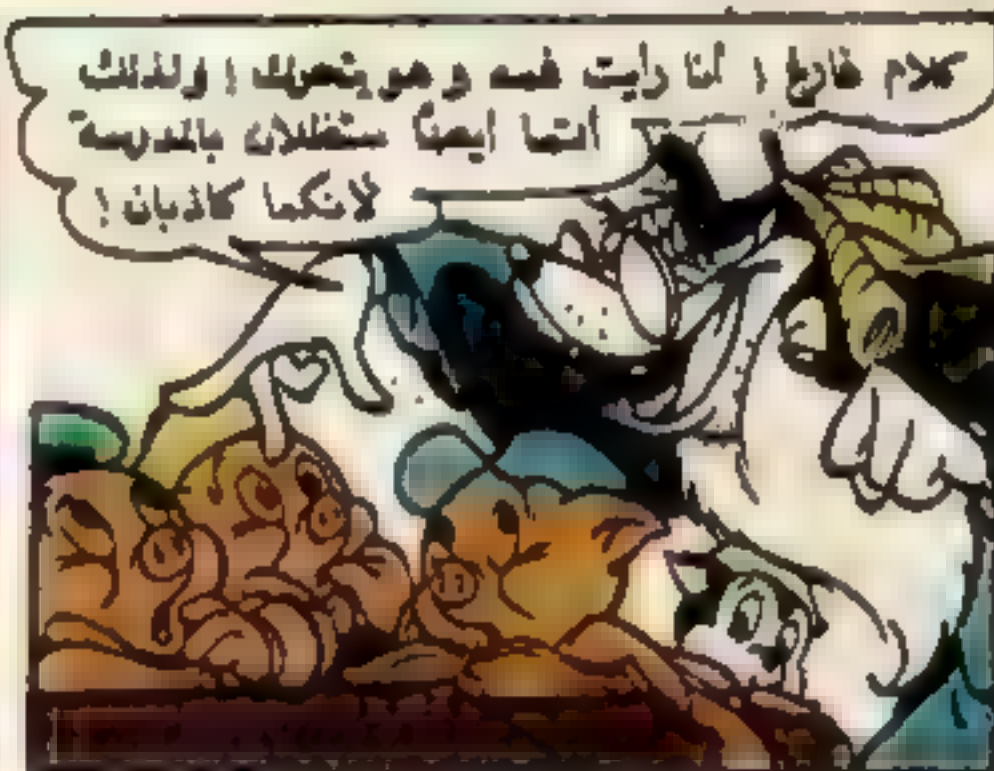 كلام فارغ ! أنا رأيت فمه و هو يتحرك ! ولذلك
أنتما أيضاً ستظلان بالمدرسة
لانكما كاذبان !